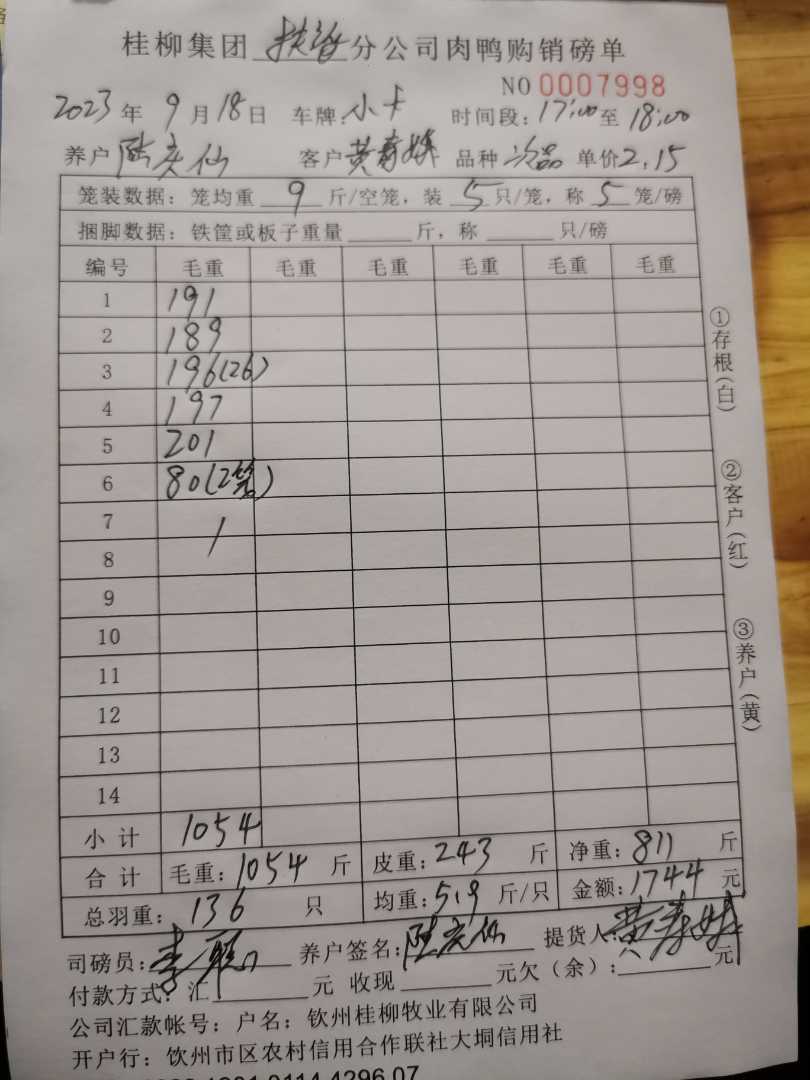 桂柳集团扶绥分公司肉鸭购销磅单
NO 0007998
2023年9月18日 车牌:小卡 时间段:17:00至18:00
养户 陆庆仙 客户 黄寿 品种 冷品 单价2.15
笼装数据：笼均重 9 斤/空笼，装 5 只/笼，称 5 笼/磅
捆脚数据：铁筐或板子重量______斤，称______只/磅
编号 毛重 毛重 毛重 毛重 毛重 毛重
1 191
2 189
3 196(26)
4 197
5 201
6 80(2笼)
7 /
8
9
10
11
12
13
14
小计 1054
合计 毛重:1054斤 皮重:243斤 净重:811斤
总羽重：136只 均重:5.9斤/只 金额:1744元
司磅员: 李 养户签名:陆庆仙 提货人:黄寿
付款方式：汇______元 收现______元欠（余）:______元
公司汇款帐号：户名：钦州桂柳牧业有限公司
开户行：饮州市区农村信用合作联社大垌信用社
0114 4296 07
①存根(白)
②客户(红)
③养户(黄)